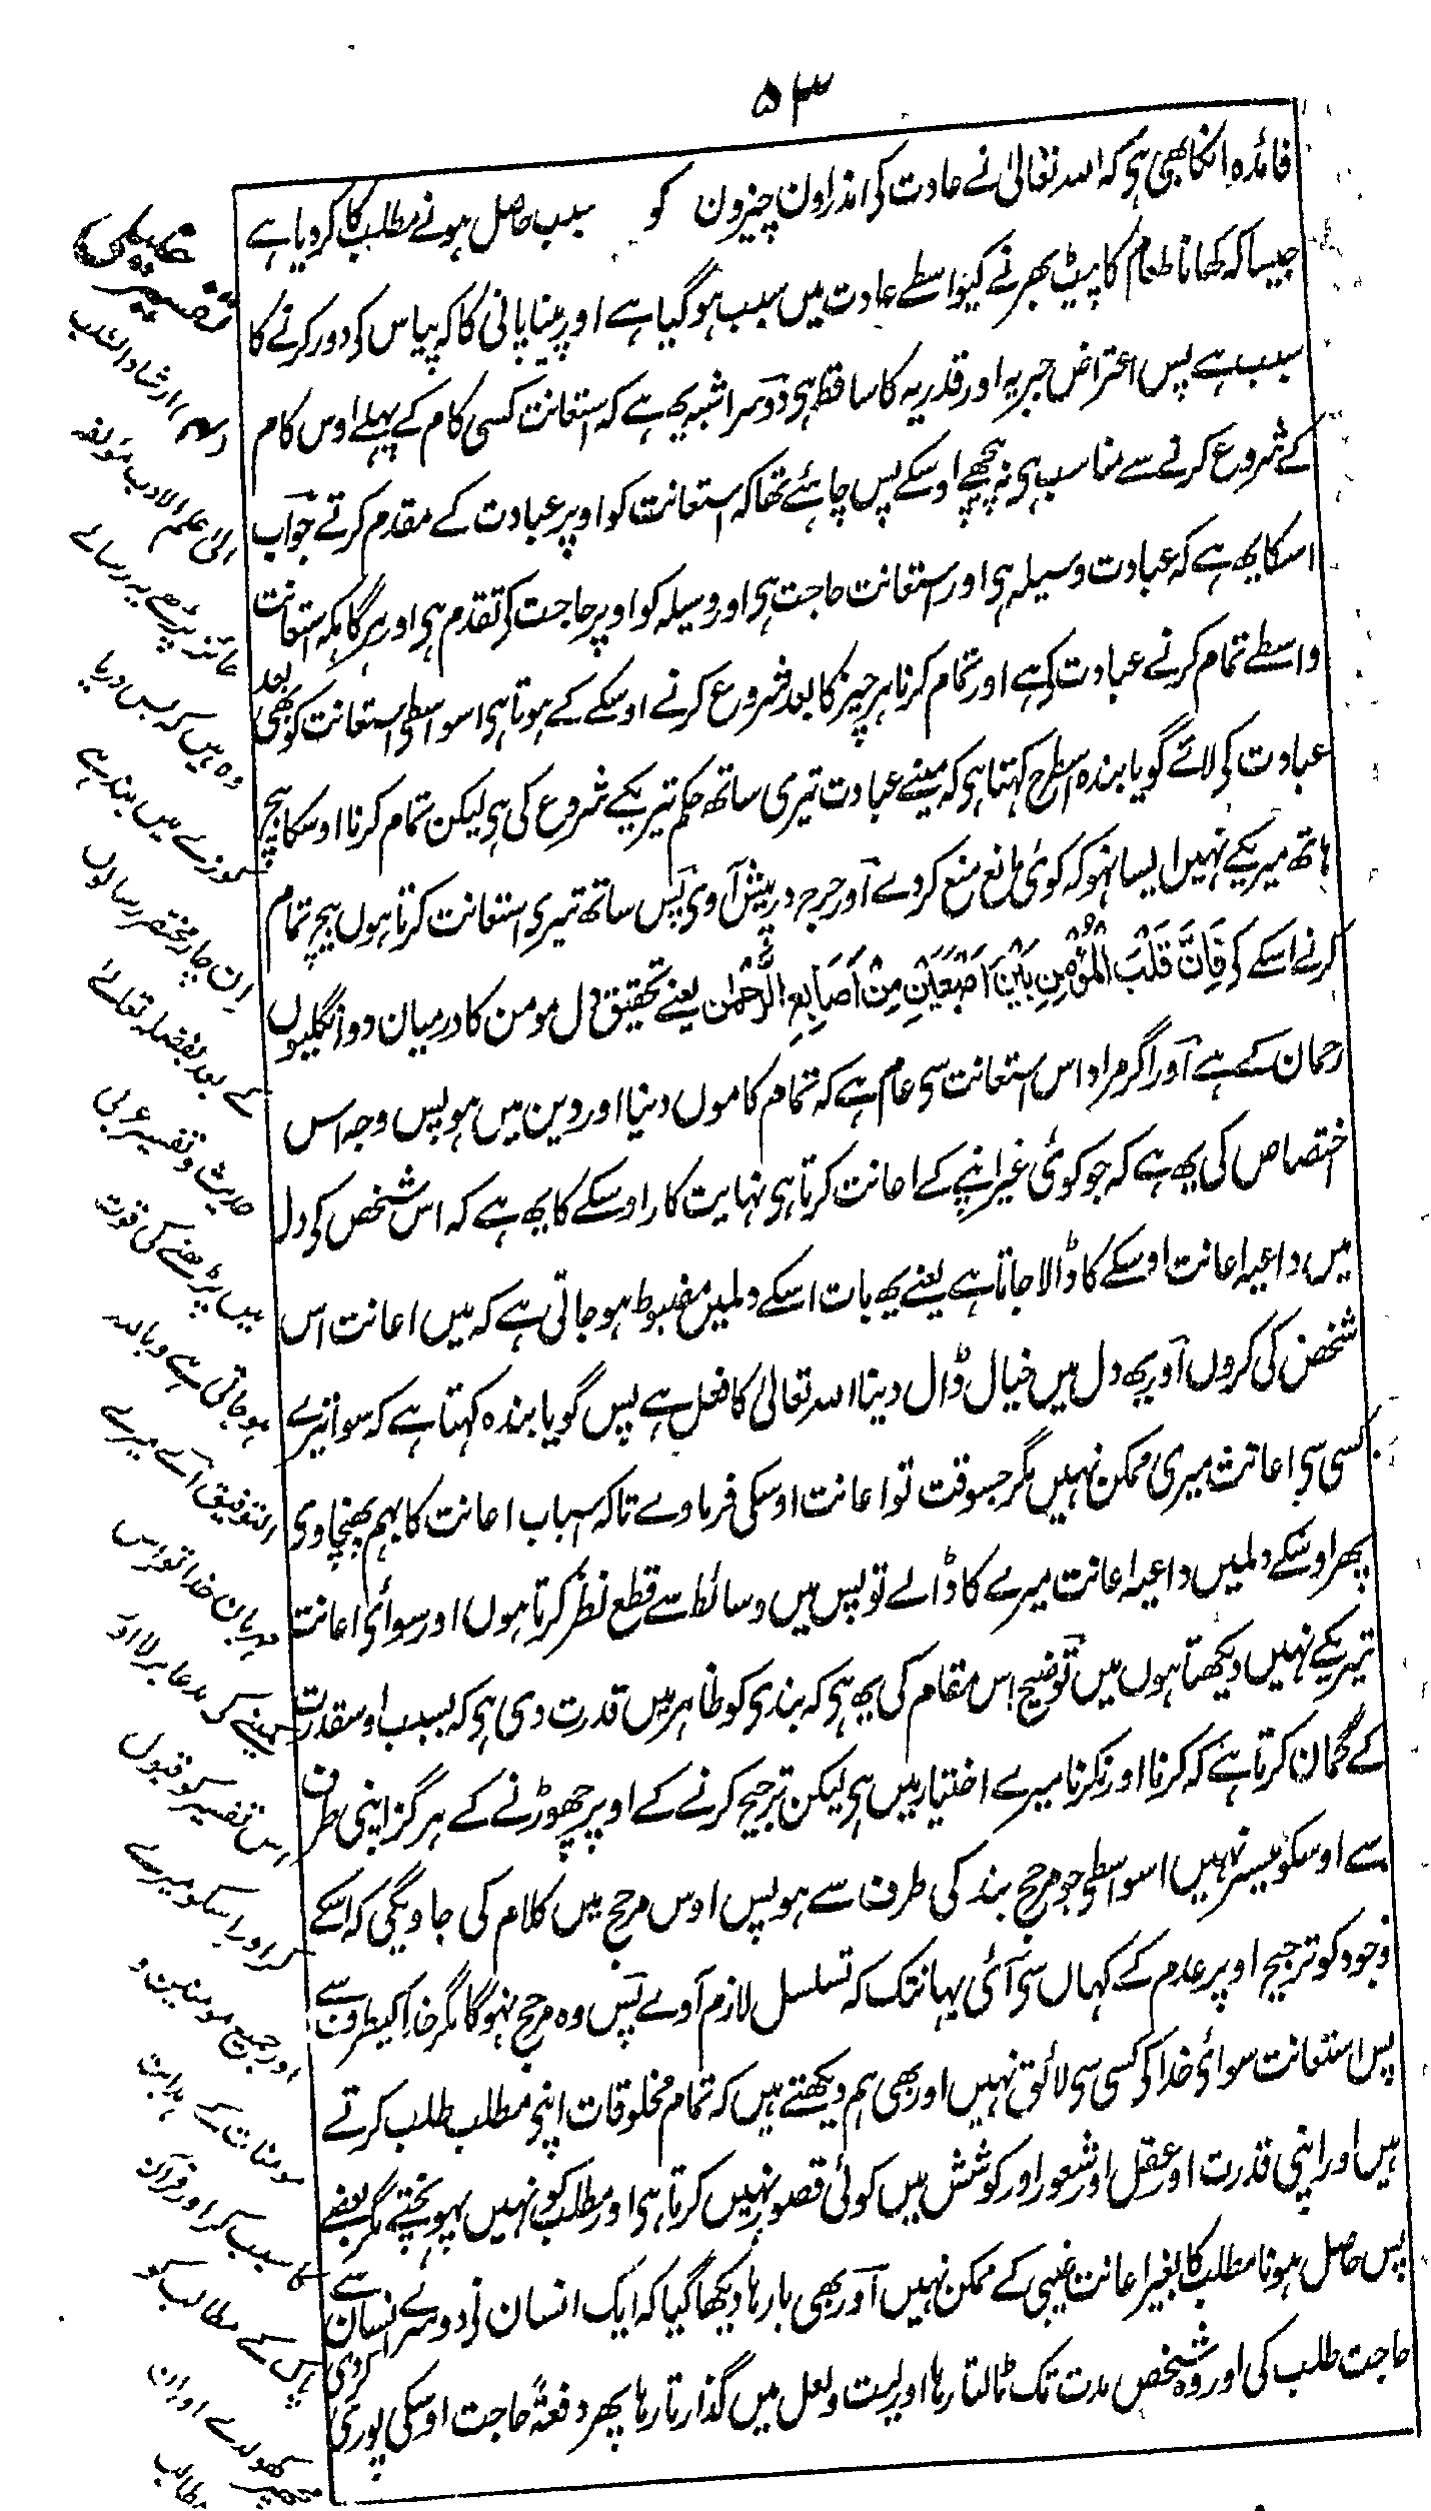 ۵۳
فائدہ انکا بھی ہی کہ اللہ تعالیٰ نے عادت کی اندر اون چیزون کو سبب حاصل ہونے مطلب کا کردیا ہے
جیسا کہ کھانا طعام کا پیٹ بھرنے کیواسطے عادت میں سبب ہوگیا ہے اور پینا پانی کا کہ پیاس کو دور کرنے کا
سبب ہے پس اعتراض جبریہ اور قدریہ کا ساقط ہی دوسرا شبہ یھ ہے کہ استعانت کسی کام کے پہلے اوس کام
کے شروع کرنے سے مناسب ہی نہ پیچھے اوسکے پس چاہئے تھا کہ استعانت کو اوپر عبادت کے مقدم کرتے جواب
اسکا یھ ہے کہ عبادت وسیلہ ہی اور استعانت حاجت ہی اور وسیلہ کو اوپر حاجت کی تقدم ہی اور ہرگاہ کہ استعانت
واسطے تمام کرنے عبادت کی ہے اور تمام کرنا ہر چیز کا بعد شروع کرنے اوسکے کے ہوتا ہی اسواسطی استعانت کو بھی بعد
عبادت کی لائے گویا بندہ اسطرح کہتا ہی کہ مینے عبادت تیری ساتھ حکم تیریکے شروع کی ہی لیکن تمام کرنا اوسکا بیچ
ہاتھ میریکے نہیں ایسا نہو کہ کوئی مانع منع کردے اور حرج درپیش آوی پس ساتھ تیری استعانت کرتا ہوں بیچ تمام
کرنے اسکے کی فَاِنَّ قَلْبَ الْمُؤْمِنِ بَیْنَ اَصْبَعَیْنِ مِنْ اَصَابِعِ الرَّحْمٰنِ یعنے تحقیق دل مومن کا درمیان دو انگلیوں
رحمان کے ہے اور اگر مراد اس استعانت سی عام ہے کہ تمام کاموں دنیا اور دین میں ہو پس وجہ اس
اختصاص کی یھ ہے کہ جو کوئی غیر اپنے کے اعانت کرتا ہی نہایت کار اوسکے کا یھ ہے کہ اس شخص کی دل
میں داعیہ اعانت اوسکے کا ڈالا جاتا ہے یعنے یھ بات اسکے دلمیں مضبوط ہو جاتی ہے کہ میں اعانت اس
شخص کی کروں اور یھ دل میں خیال ڈال دینا اللہ تعالی کا فعل ہے پس گویا بندہ کہتا ہے کہ سوا تیرے
کسی سی اعانت میری ممکن نہیں مگر جسوقت تو اعانت اوسکی فرماوے تاکہ اسباب اعانت کا بہم پھنچاوی
پھر اوسکے دلمیں داعیہ اعانت میرے کا ڈالے تو پس میں وسائط سے قطع نظر کرتا ہوں اور سوائی اعانت
تیریکے نہیں دیکھتا ہوں میں توضیح اس مقام کی یھ ہی کہ بندی کو ظاہر میں قدرت دی ہی کہ بسبب اوسقدرت
کے گمان کرتا ہے کہ کرنا اور نکرنا میرے اختیار میں ہی لیکن ترجیح کرنے کے اوپر چھوڑنے کے ہرگز اپنی طرف
سے اوسکو میسر نہیں اسواسطی جو مرجح بندکی طرف سے ہو پس اوس مرجح میں کلام کی جاویگی کہ اسکے
وجود کو ترجیح اوپر عدم کے کہاں سی آئی یہانتک کہ تسلسل لازم آوے پس وہ مرجح نہوگا مگر خدا کیطرف سے
پس استعانت سوائی خدا کی کسی سی لائق نہیں اور بھی ہم دیکھتے ہیں کہ تمام مخلوقات اپنی مطلب طلب کرتے
ہیں اور اپنی قدرت اور عقل اور شعور اور کوشش میں کوئی قصور نہیں کرتا ہی اور مطلب کو نہیں پہونچتے مگر بعضے
پس حاصل ہونا مطلب کا بغیر اعانت غیبی کے ممکن نہیں اور بھی بارہا دیکھا گیا کہ ایک انسان نی دوسرے انسان سے
حاجت طلب کی اور وہ شخص مدت تک ٹالتا رہا اور لیت و لعل میں گذارتا رہا پھر دفعۃً حاجت اوسکی پوری کردی
تفسیر
ارشاد الطلب
الی علم الادب مولفہ
پڑھے یہ رسالے
وہ ہیں کہ بس دریا
کوزے میں بند ہے
ان چار مختصر رسالوں
کے بعد بفضلہ تعالے
حدیث و تفسیر عربی
میں پڑھنے کی قوت
ہو جاتی ہے و باللہ
التوفیق اے میرے
مہربان خدا تو اس
کمینے کی دعا بر لا اور
اس تفسیر کو قبول
کر اور اسکو میرے
اور جمیع مومنین و
مومنات کے ہدایت
کا سبب کر اور قرآن
پاس کے مطالب کو
کھولدے اور ان
مطالب